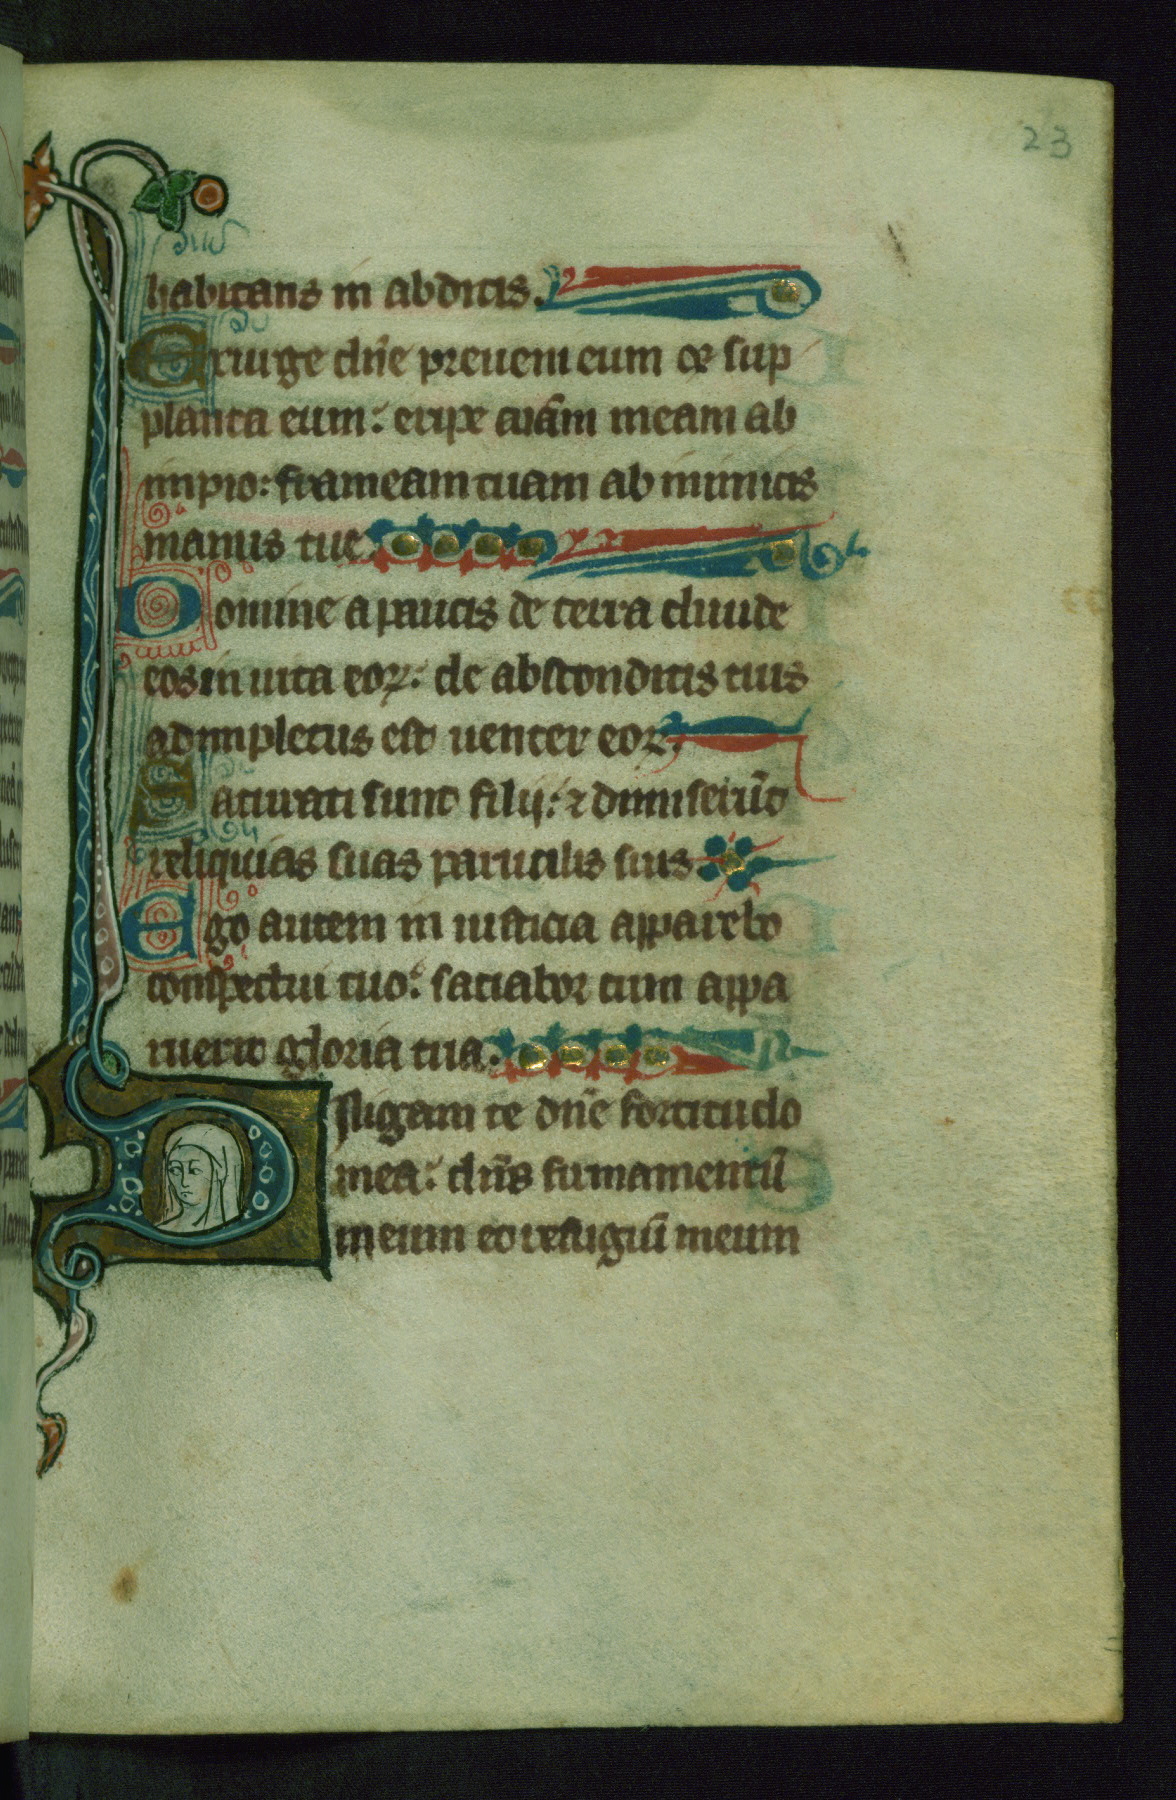 23
habitans in abditis.
Exurge dñe preueni eum et sup
planta eum: eripe aiām meam ab
impio: frameam tuam ab inimicis
manus tue
Domine a paucis de terra diuide
eos in uita eoꝝ: de absconditis tuis
adimpletus est uenter eoꝝ.
Saturati sunt filij: ⁊ dimiserūt
reliquias suas paruulis suis
Ego autem in iusticia apparebo
conspectui tuo: saciabor cum appa
ruerit gloria tua.
Diligam te dñe fortitudo
mea: dñs firmamentū
meum et refugiū meum